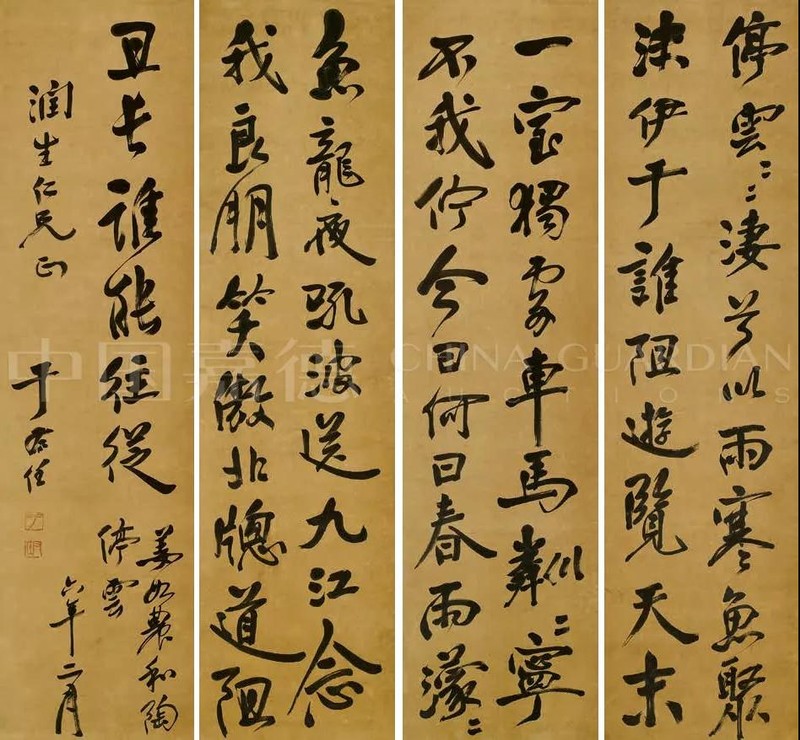 停雲々々淒兮以雨寒魚聚
沫伊于誰阻遊覽天末
一室獨處車馬粼々寧
不我佇今日何日春雨濛々
魚龍夜吼波送九江念
我良朋笑傲北牕道阻
且長誰能往從
姜如農和陶
停雲
六年二月
潤生仁兄正
于右任
中国嘉德 CHINA GUARDIAN
AUCTIONS